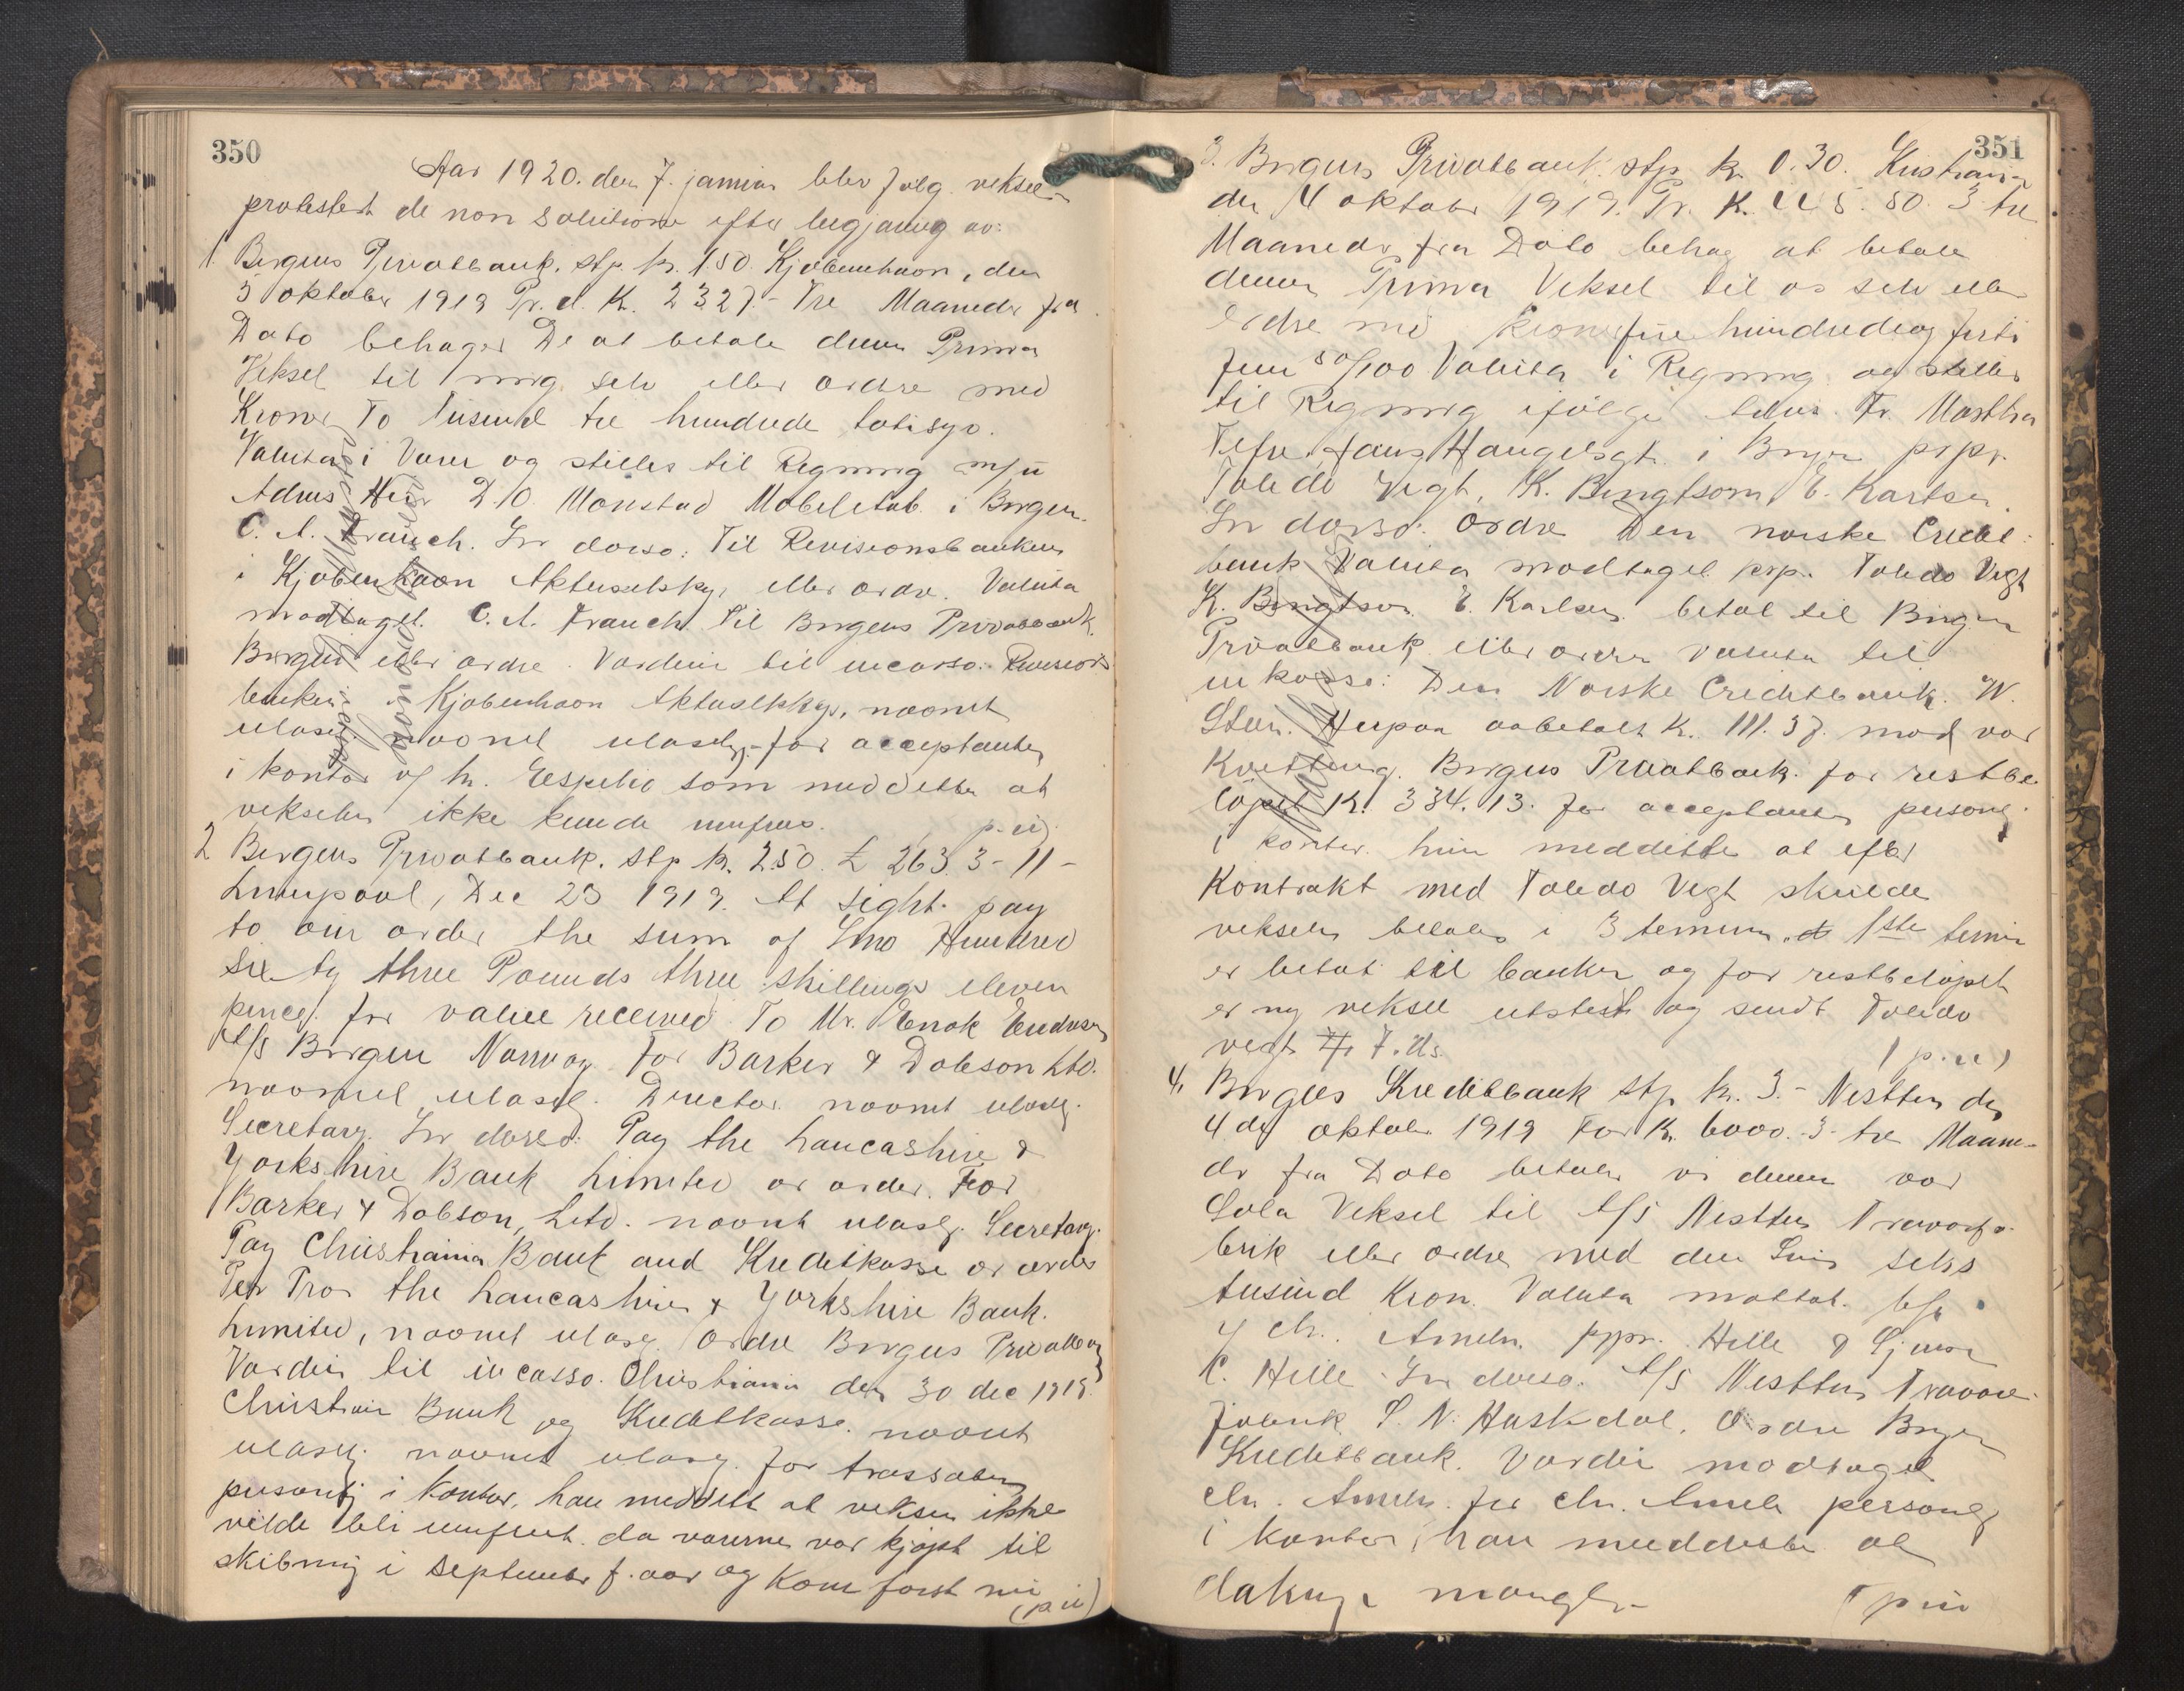 350
Aar 1920. den 7. januar blev følg. veksel
protestert de non solutione efter begjæring av:
1. Bergens Privatbank. stp. kr. 1.50 Kjøbenhavn, den
5 oktober 1919 Pr. d. K. 2327.- Tre Maaneder fra
Dato behager De at betale denne Prima
Veksel til mig selv eller ordre med
Kroner To tusend tre hundrede totisyv.
Valuta i Varer og stilles til Regning
Adres Herr D. O. Monstad Møbeletab. i Bergen.
C. A. Franch. In dorso: Til Revisionsbanken
i Kjøbenhavn Aktieselskap, eller ordre. Valuta
modtaget. C. A. Franch. Til Bergens Privatbank.
Bergen eller ordre. Værdien til incasso. Revisions
banken i Kjøbenhavn Aktieselskap, navnet
ulæsel. navnet ulæselg. for acceptanten
i kontor v/ hr. Espelid som meddelte at
vekselen ikke kunde innfries. p. u.
2 Bergens Privatbank. stp kr. 2.50. £ 263. 3 - 11 -
Liverpool, Dec 23 1919. At sight pay
to our order the sum of Two Hundred
Sixty three Pounds three shillings eleven
pence/. for value received. To Mr. Enok Endresen
A/S Bergen Norway. For Barker & Dobson Ltd.
navnet ulæselg. Director navnet ulæselg.
Secretary. In dorso: Pay the Lancashire &
Yorkshire Bank Limited or order. For
Barker & Dobson, Ltd. navnet ulæselg. Secretary.
Pay Christiania Bank and Kreditkasse or order
Per Pro. the Lancashire & Yorkshire Bank.
Limited, navnet ulæselg. Ordre Bergens Privatbank
Værdien til incasso. Christiania den 30 dec 1919.
Christiania Bank og Kreditkasse. navnet
ulæselg. navnet ulæselg. for trassaten
personlig i kontor, han meddelte at veksen ikke
vilde bli innfriet. da varerne var kjøpt til
skibning i September f. aar og kom først nu
(p. u)
351
3. Bergens Privatbank. stp. kr. 0.30. Kristiania
den 4 oktober 1919. Pr. K. 445.50. 3 tre
Maaneder fra Dato behag at betale
denne Prima Veksel til os selv eller
ordre med kroner fire hundrede og førti
fem 50/100 Valuta i Regning og stilles
til Regning ifølge adres. Fr. Martha
Haugelsgt. i Bergen prpr.
Toledo Vegt, K. Bengtson, E. Karlsen.
In dorso: Ordre Den norske Credit-
bank Valuta modtaget prp. Toledo Vegt
K. Bengtson. E. Karlsen. betal til Bergens
Privatbank eller ordre valuta til
inkasso: Den Norske Creditbank. W.
Sten. Herpaa avbetalt K. 111.37. mod vor
Kvittering. Bergens Privatbank. for restbe-
løpet Kr. 334.13. for acceptanten personlg.
i kontor. hun meddelte at efter
Kontrakt med Toledo Vegt skulde
vekselen betales i 3 terminer, 1ste termin
er betalt til banken og for restbeløpet
er ny veksel utstedt og sendt Toledo
vegt
(p. u)
4. Bergens Kreditbank stp. kr. 3.- Nesttun den
4 de oktober 1919 For Kr. 6000.- 3 tre Maane-
der fra Dato betaler vi denne vor
Sola Veksel til A/S Nesttun Trævarefa-
brik eller ordre med den Sum seks
tusind Kron. Valuta mottat.
Chr. Ameln. prpr. Hille &
C. Hille. In dorso. A/S Nesttun Trævare-
fabrik. S. N. Haskdal. Ordre Bergens
Kreditbank. Værdi modtaget
Chr. Ameln. for Chr. Ameln personlg
i kontor, han meddelte at
dækning mangler. (p. u